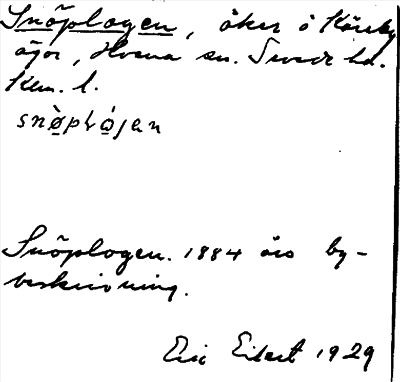 Snöplogen, åker å Kåreby
ägor, Hvena sn. Sevede hd.
Klm. l.
snø̀pɫǫ́jən
Snöplogen. 1884 års by-
beskrivning.
Eric Eilert 1929